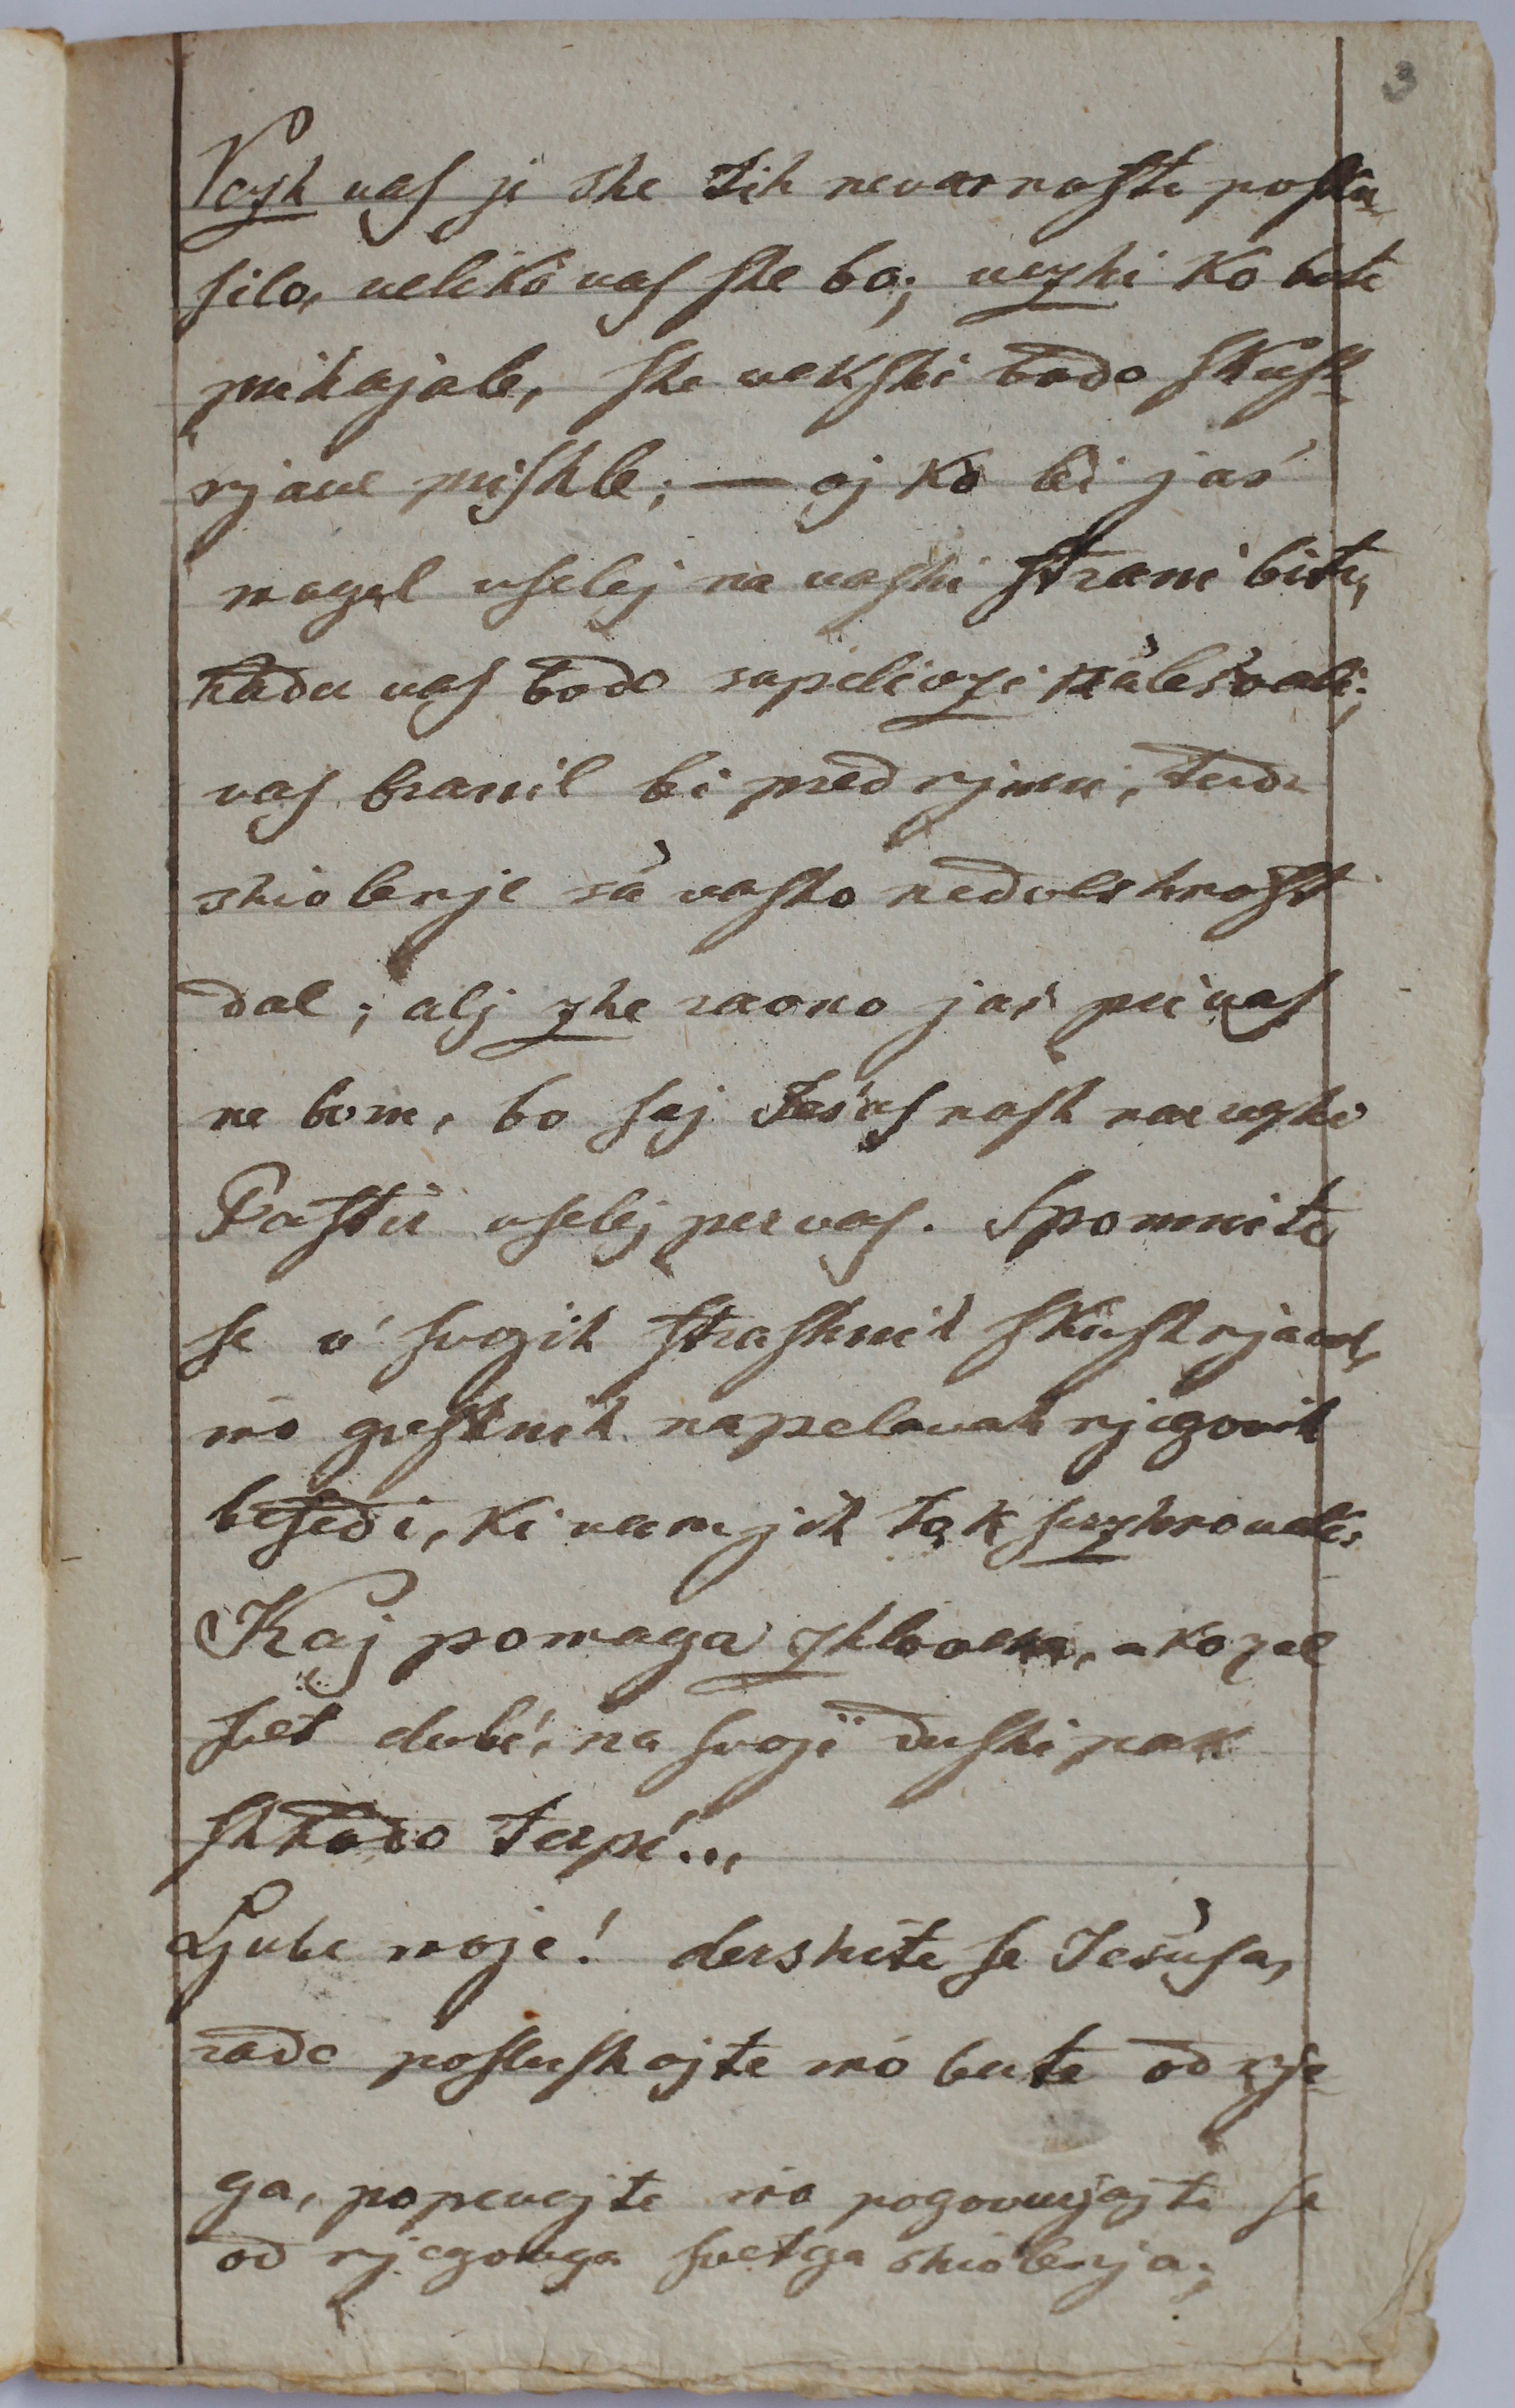 3
Vezh vaſ je she tih nevarnoſti poſku-
ſilo, veliko vaſ ſhe bo; vezhi ko bote
prihajale, ſhe vekſhi bodo ſkuſh-
njave priſhle; — oj ko bi jas
mogel vſelej na vaſhi ſtrani biti,
kader vaſ bodo sapelivzi nalesvali;
vaſ branil bi pred njimi, tudi
shivlenje sa vaſho nedolshnoſt
dal; alj zhe ravno jas pri vaſ
ne bom, bo ſej Jesuſ naſh narvezhi
Paſtir vſelej per vaſ. Spomnite
ſe v' ſvojih ſtraſhnih ſkuſhnjavah,
ino greſhnih napelovah njegovih
beſedi, ki vam jih tak ſerzhno velí:
Kaj pomaga zhloveku, ako zel
ſvet dobí, na ſvoji duſhi pak
ſhkodo terpí...
Ljube moje! dershite ſe Jesuſa,
rade poſluſhajte ino berite od nje-
ga, popevajte ino pogovarjajte ſe
od njegovga ſvetga shivlenja;